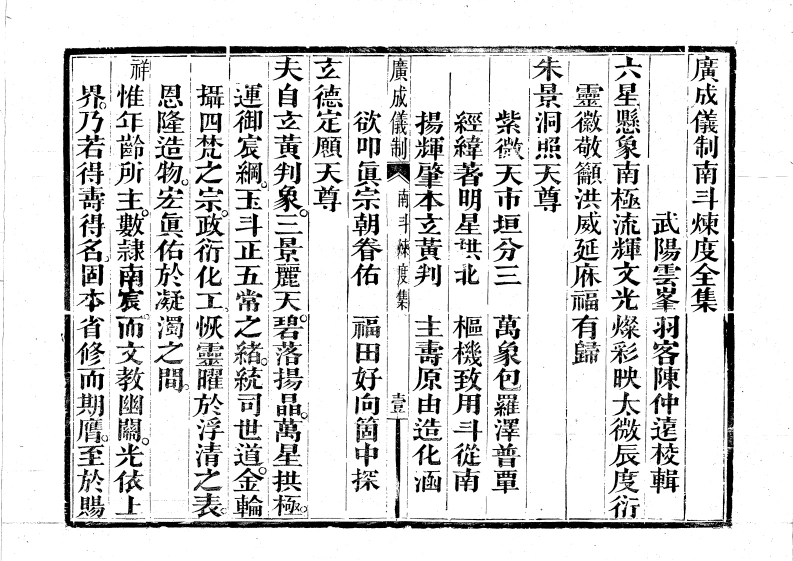 廣成儀制南斗煉度全集
武陽雲峯羽客陳仲遠校輯
六星懸象南極流輝文光燦彩映太微辰度衍
靈徽敬籲洪威延庥福有歸
朱景洞照天尊
紫微天市垣分三　萬象包羅澤普覃
經緯著明星拱北　樞機致用斗從南
揚輝肇本玄黃判　主壽原由造化涵
廣成儀制　南斗煉度集　壹
欲叩眞宗朝眷佑　福田好向箇中探
玄德定願天尊
夫自玄黃判象。三景麗天。碧落揚晶。萬星拱極。
運御宸綱。玉斗正五常之緒。統司世道。金輪
攝四梵之宗。政衍化工。恢靈曜於浮清之表。
恩隆造物。宏眞佑於凝濁之間。
祥
惟年齡所主。數隷南宸。而文教幽關。光依上
界。乃若得壽得名。固本省修而期膺。至於賜